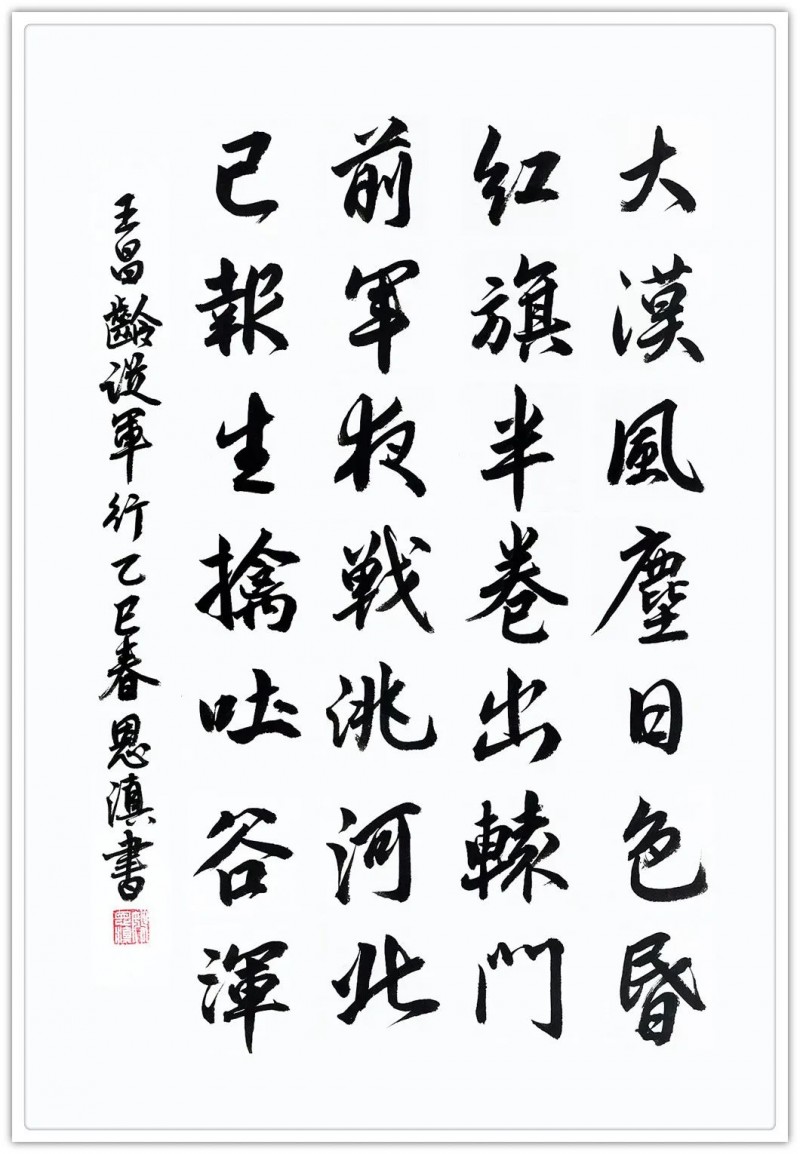 大漠風塵日色昏
紅旗半卷出轅門
前軍夜戰洮河北
已報生擒吐谷渾
王昌齡從軍行乙巳春恩滇書